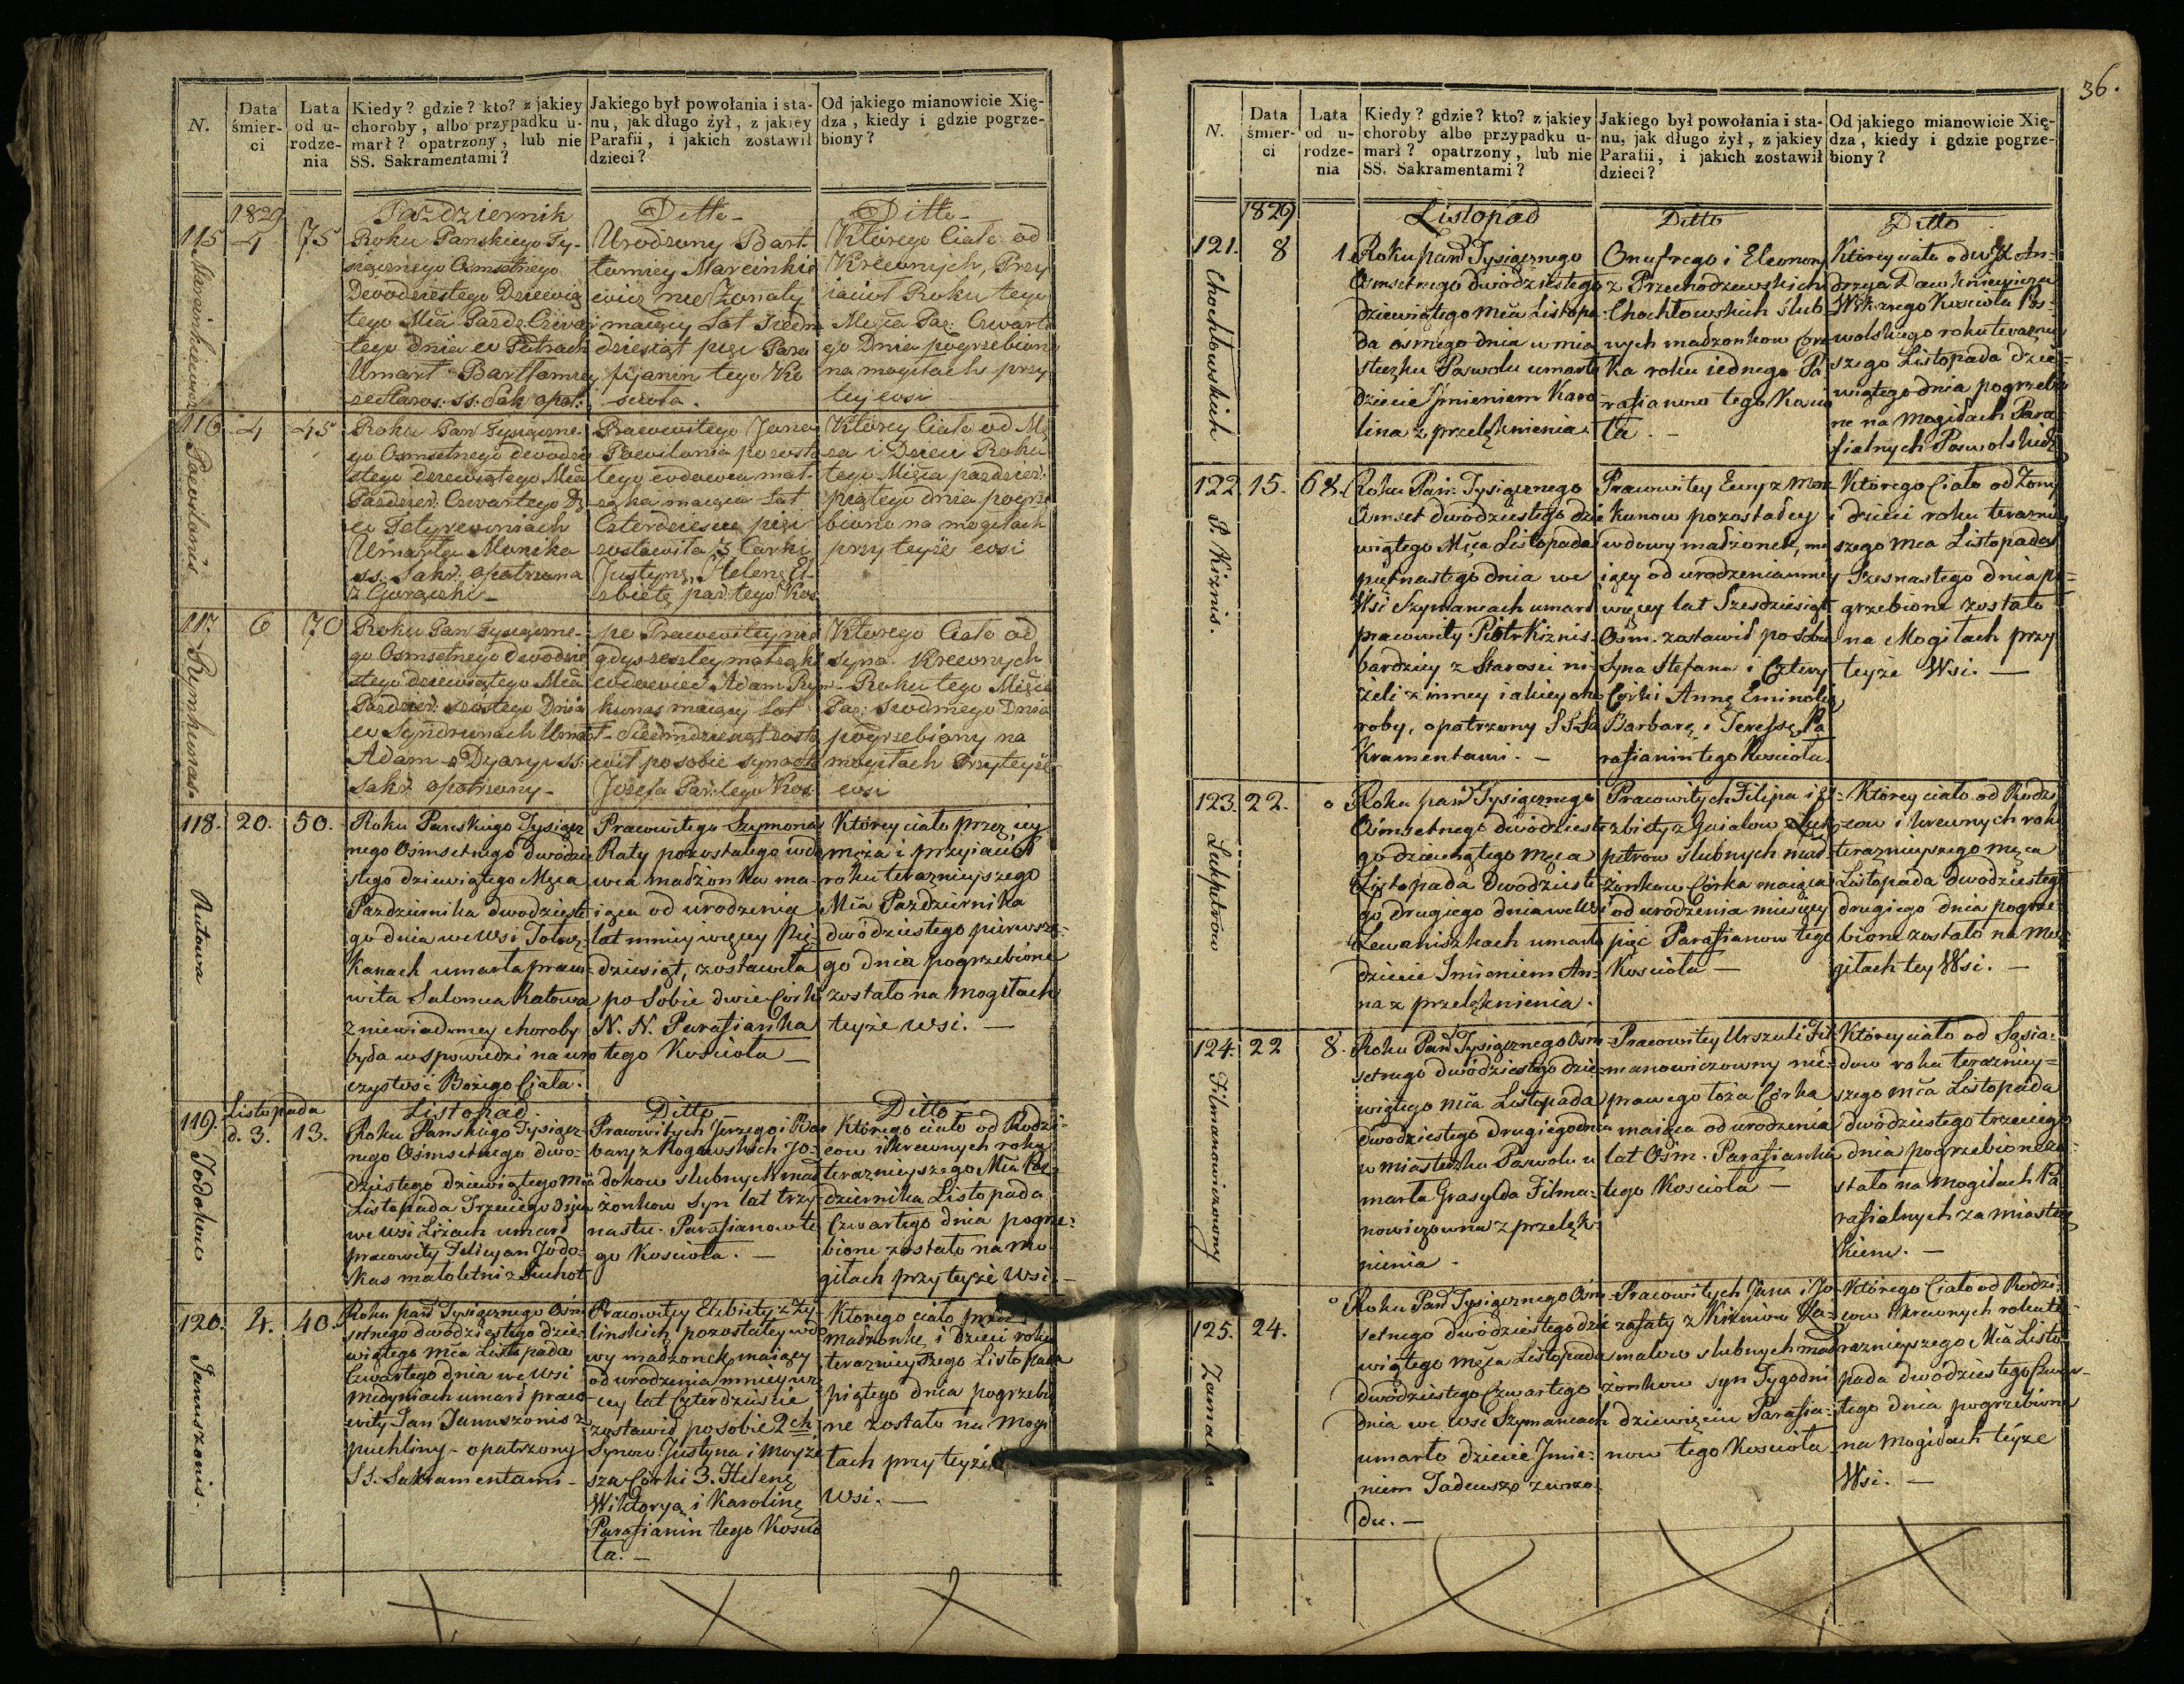 N.
Data śmier-
ci
Lata od u-
rodze-
nia
Kiedy? gdzie? kto? z jakiey
choroby, albo przypadku u-
marł? opatrzony, lub nie
SS. Sakramentami?
Jakiego był powołania i sta-
nu, jak długo żył, z jakiey
Parafii, i jakich zostawił
dzieci?
Od jakiego mianowicie Xię-
dza, kiedy i gdzie pogrze-
biony?
1829
Październik
Ditto
Ditto
115
4
75
Roku Panskiego Ty-
siącznego Osmsetnego
Dwódziestego Dziewią
tego Mca Paźdz. Czwar
tego dnia w
Umarł Bartłomiey
Urodzony Bart
łomiey Marcinkie
wicz nie Żonaty
maiący Lat Siedm
dziesiąt pięć Para
fijanin tego Ko
scioła.
Którego Ciało od
Krewnych, Przy
iaciół Roku tego
Mca Paź: Czwarte
go Dnia pogrzebiono
na mogiłach przy
tey wsi
116
4
45
Roku Pań Tysiączne-
go Osmsetnego dwódzie
stego dziewiątego Mca
Paździer. Czwartego D
Umarła Monika
ss. Sakr. opatrzona
z Gorączki
Pracowitego Jana
Pawilania pozosta
łego wdowca mał-
żąka maiąca Lat
Czterdzieści pięć
zostawiła 3 Córki
Justynę, Helenę El-
żbietę par: tego Kos
Którey Ciało od Mę
ża i Dzieci Roku
tego Mięca paździer:
piątego dnia pogrze
biono na mogiłach
przy teyże wsi
117
Rymkunas
6
70
Roku Pań Tysiączne-
go Osmsetnego dwódzie
stego dziewiątego Mca
Paździer: szóstego Dnia
Adam z Dyaryi ss.
sakr opatrzony
po Pracowitey nie
gdyś zeszłey małżąk
wdowiec Adam Rym
kunas maiący Lat
Siedmdziesiąt zosta
wił po sobie syna
Jozefa Par: tego Kos
Którego Ciało od
syna Krewnych
Roku tego Mięca
Paź: siodmego Dnia
pogrzebiony na
mogiłach przy teyże
wsi
118.
Ratowa
20.
50.
Roku Panskiego Tysiącz
nego Ośmsetnego dwódzie
stego dziewiątego Męca
Października dwodzieste
go dnia we Wsi
umarła praco-
wita Salomea Ratowa
z niewiadomey choroby
była w spowiedzi na uro
czystość Bożego Ciała.
Pracowitego Szymona
Raty pozostałego wdo
wca madżonka ma-
iąca od urodzenia
lat mniey więcey Pięć-
dziesiąt, zostawiła
po sobie dwie Córki
N. N. Parafianka
tego Kościoła
Którey ciało przez iey
męża i przyiaciół
roku teraznieyszego
Mca Października
dwódziestego pierwsze-
go dnia pogrzebione
zostało na mogiłach
teyże wsi.
Listopada
Listopad.
Ditto
Ditto
119.
d. 3.
13.
Roku Panskiego Tysiącz-
nego Ośmsetnego dwo-
dziestego dziewiątego Mca
Listopada Trzeciego dnia
we Wsi Liżach umarł
pracowity Felicyan Jodo-
kas małoletni z Suchot
Pracowitych Jerzego i Bar
bary z Rogowskich Jo-
dokow slubnych mad
żonkow syn lat trzy-
nastu. Parafianow te
go Kościoła.
Którego ciało od Rodzi-
cow i Krewnych roku
teraznieyszego Mca Paź-
dziernika Listopada
Czwartego dnia pogrze-
bione zostało na mo-
giłach przy teyże wsi.
120.
Januszonis.
4.
40.
Roku Pań Tysiącznego Ośm
setnego dwódziestego dzie-
wiątego Mca Listopada
Czwartego dnia we Wsi
Medyniach umarł praco-
wity Jan Januszonis z
puchliny opatrzony
SS. Sakramentami
Pracowitey Elżbiety z Ży-
linskich pozostałey wdo
wy madżonek maiący
od urodzenia mniey wię
cey lat Czterdzieście
zostawił po sobie 2ch
Synow Justyna i Moyże
sza Córki 3. Helenę
Wiktoryą i Karolinę
Parafianin tego Koscio
ła.
Którego ciało przez
Madżonkę i Dzieci roku
teraznieyszego Listopada
piątego dnia pogrzebio
ne zostało na mogi
łach przy teyże
Wsi.
36.
N.
Data śmier-
ci
Lata od u-
rodze-
nia
Kiedy? gdzie? kto? z jakiey
choroby albo przypadku u-
marł? opatrzony, lub nie
SS. Sakramentami?
Jakiego był powołania i sta-
nu, jak długo żył, z jakiey
Parafii, i jakich zostawił
dzieci?
Od jakiego mianowicie Xię-
dza, kiedy i gdzie pogrze-
biony?
1829
Listopad
Ditto
Ditto
121.
Chochłowskich
8
1.
Roku pań Tysiącznego
Osmsetnego dwódziestego
dziewiątego Mca Listopa-
da ósmego dnia w mia
steczku Poswolu umarło
dziecie Imieniem Karo
lina z przelęknienia.
Onufrego i Eleonory
z Przechodzewskich
Chochłowskich ślub-
nych madżonkow Cor
ka roku iednego Pa
rafianow tego Koscio
ła.
Którey ciało od WJX An-
drzeja Dawkniewicza
Wikarego Kościoła Po-
swolskiego roku teraźniey
szego Listopada dzie-
wiątego dnia pogrzebio
ne na Mogiłach Para
fialnych Poswolskich
122.
P. Kiznis.
15.
68.
Roku Pań. Tysiącznego
Osmset dwódziestego dzie
wiątego Mca Listopada
piętnastego dnia we
Wsi Szymancach umarł
pracowity Piotr Kiznis
bardziey z Starości ni-
żeli z inney iakiey cho
roby, opatrzony SS. Sa
kramentami.
Pracowitey Ewy z Mor
kunow pozostałey
wdowy madżonek, ma
iący od urodzenia mniey
więcey lat Szesdziesiąt
Ośm. zostawił po sobie
Syna Stefana i Cztery
Córki Annę
Barbarę i Teressę Pa
rafianin tego Kościoła.
Którego Ciało od Żony
i dzieci roku teraźniey
szego Mca Listopada
Szesnastego dnia po-
grzebione zostało
na Mogiłach przy
teyże Wsi.
123.
Lukpetrów
22.
0
Roku pań Tysiącznego
Ośmsetnego dwódzieste
go dziewiątego Męca
Listopada dwódzieste
go drugiego dnia we Wsi
Lewaniszkach umarło
dziecie Imieniem An-
na z przelęknienia.
Pracowitych Filipa i El-
żbiety z Gaialow Luk
petrow slubnych mad-
żonkow Córka maiąca
od urodzenia miesięcy
pięć Parafianow tego
Kościoła
Którey ciało od Rodzi
cow i krewnych roku
teraznieyszego męca
Listopada dwódziestego
drugiego dnia pogrze-
bione zostało na Mo-
giłach tey Wsi.
124.
Filmanowiczowny
22
8.
Roku Pań Tysiącznego Ośm
setnego dwódziestego dzie-
wiątego Mca Listopada
dwodziestego drugiego dnia
w miasteczku Poswolu u
marła Grasylda Filma-
nowiczowna z przelęk-
nienia.
Pracowitey Urszuli Fil-
manowiczowny nie-
prawego łoża Córka
maiąca od urodzenia
lat Ośm. Parafianka
tego Kościoła
Którey ciało od Sąsia-
dow roku teraźniey-
szego mca Listopada
dwódziestego trzeciego
dnia pogrzebione zo-
stało na mogiłach Pa
rafialnych za miastecz
kiem.
125.
24.
0
Roku Pań Tysiącznego Ośm
setnego dwódziestego dzie
wiątego męca Listopada
dwódziestego Czwartego
dnia we wsi Szymancach
umarło dziecie Imie-
niem Tadeusz z wrzo
du.
Pracowitych Jana i Jo-
zafaty z Kizniow Za-
małow slubnych mad
żonkow syn Tygodni
dziewięciu Parafia-
now tego Kościoła
Którego Ciało od Rodzi-
cow i krewnych roku te
raznieyszego Mca Listo
pada dwódziestego Czwar-
tego dnia pogrzebione
na Mogiłach teyże
Wsi.